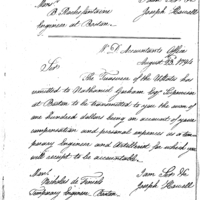 Mons.
B. Rochefontaine
Engineer at Boston
I am Sir &c
Joseph Howell
W. D. Accountants Office
August 23. 1794
Sir
The Treasurer of the UStates has
remitted to Nathaniel Gorham Esq. Supervisor
at Boston to be transmitted to you the sum of
one hundred dollars being on account of your
compensation and personal expences as a tem
porary Engineer and Artillerist for which you
will except to be accountable.
I am Sir &c
Joseph Howell
Mons.
Nicholas de
Temporary Engineer Boston